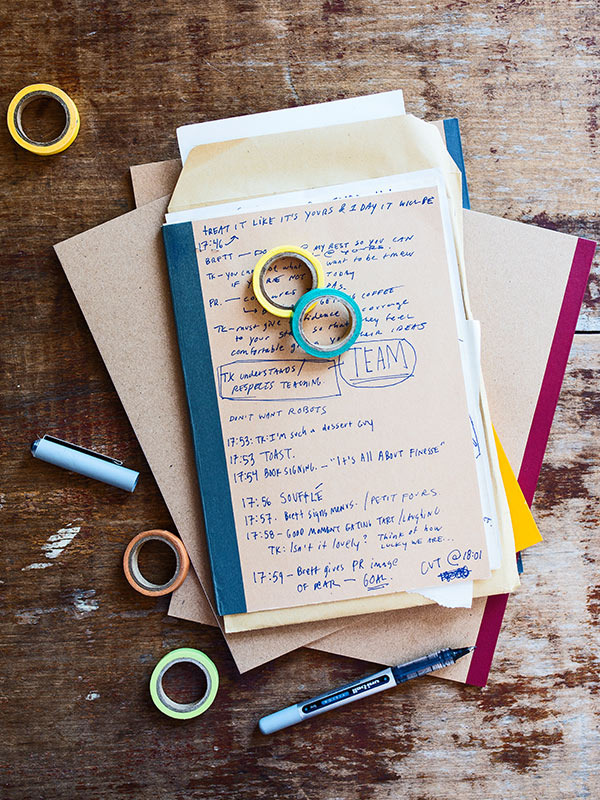 TREAT IT LIKE IT'S YOURS & 1 DAY IT WILL BE
17:46
BRETT — DO @ MY REST SO YOU CAN
TK — YOU CA WANT TO BE
IF YOU'RE NOT TODAY
PR. — COFFEE
TK — MUST GIVE
TO YOUR STA SO THAT THEY FEEL
COMFORTABLE G THEIR IDEAS
TK UNDERSTANDS/
RESPECTS TEACHING.
TEAM
DON'T WANT ROBOTS
17:53: TK: I'M SUCH A DESSERT GUY
17:53 TOAST.
17:54 BOOK SIGNING. — "IT'S ALL ABOUT FINESSE"
17:56 SOUFFLÉ
17:57. BRETT SIGNS MENUS. / PETIT FOURS
17:58 — GOOD MOMENT EATING TART / LAUGHING
TK: ISN'T IT LOVELY? THINK OF HOW
LUCKY WE ARE...
17:59 — BRETT GIVES PR IMAGE
OF — GOAL.
CVT @ 18:01
uni-ball